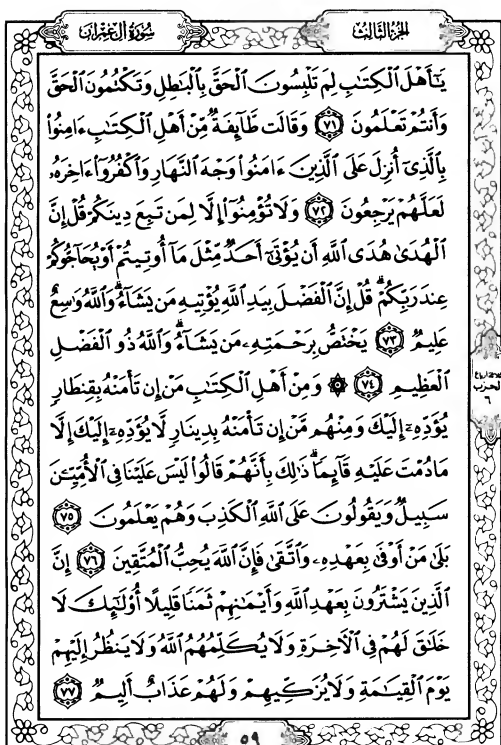 سُورَةُ آلِ عِمْرَانَ
الجُزْءُ الثَّالِثُ
يَٰٓأَهْلَ ٱلْكِتَٰبِ لِمَ تَلْبِسُونَ ٱلْحَقَّ بِٱلْبَٰطِلِ وَتَكْتُمُونَ ٱلْحَقَّ
وَأَنتُمْ تَعْلَمُونَ ٧١ وَقَالَت طَّآئِفَةٌ مِّنْ أَهْلِ ٱلْكِتَٰبِ ءَامِنُوا۟
بِٱلَّذِىٓ أُنزِلَ عَلَى ٱلَّذِينَ ءَامَنُوا۟ وَجْهَ ٱلنَّهَارِ وَٱكْفُرُوٓا۟ ءَاخِرَهُۥ
لَعَلَّهُمْ يَرْجِعُونَ ٧٢ وَلَا تُؤْمِنُوٓا۟ إِلَّا لِمَن تَبِعَ دِينَكُمْ قُلْ إِنَّ
ٱلْهُدَىٰ هُدَى ٱللَّهِ أَن يُؤْتَىٰٓ أَحَدٌ مِّثْلَ مَآ أُوتِيتُمْ أَوْ يُحَآجُّوكُمْ
عِندَ رَبِّكُمْ ۗ قُلْ إِنَّ ٱلْفَضْلَ بِيَدِ ٱللَّهِ يُؤْتِيهِ مَن يَشَآءُ ۗ وَٱللَّهُ وَٰسِعٌ
عَلِيمٌ ٧٣ يَخْتَصُّ بِرَحْمَتِهِۦ مَن يَشَآءُ ۗ وَٱللَّهُ ذُو ٱلْفَضْلِ
ٱلْعَظِيمِ ٧٤ ۞ وَمِنْ أَهْلِ ٱلْكِتَٰبِ مَنْ إِن تَأْمَنْهُ بِقِنطَارٍ
يُؤَدِّهِۦٓ إِلَيْكَ وَمِنْهُم مَّنْ إِن تَأْمَنْهُ بِدِينَارٍ لَّا يُؤَدِّهِۦٓ إِلَيْكَ إِلَّا
مَا دُمْتَ عَلَيْهِ قَآئِمًا ۗ ذَٰلِكَ بِأَنَّهُمْ قَالُوا۟ لَيْسَ عَلَيْنَا فِى ٱلْأُمِّيِّۦنَ
سَبِيلٌ وَيَقُولُونَ عَلَى ٱللَّهِ ٱلْكَذِبَ وَهُمْ يَعْلَمُونَ ٧٥
بَلَىٰ مَنْ أَوْفَىٰ بِعَهْدِهِۦ وَٱتَّقَىٰ فَإِنَّ ٱللَّهَ يُحِبُّ ٱلْمُتَّقِينَ ٧٦ إِنَّ
ٱلَّذِينَ يَشْتَرُونَ بِعَهْدِ ٱللَّهِ وَأَيْمَٰنِهِمْ ثَمَنًا قَلِيلًا أُو۟لَٰٓئِكَ لَا
خَلَٰقَ لَهُمْ فِى ٱلْءَاخِرَةِ وَلَا يُكَلِّمُهُمُ ٱللَّهُ وَلَا يَنظُرُ إِلَيْهِمْ
يَوْمَ ٱلْقِيَٰمَةِ وَلَا يُزَكِّيهِمْ وَلَهُمْ عَذَابٌ أَلِيمٌ ٧٧
الحزب
٦
٥٩